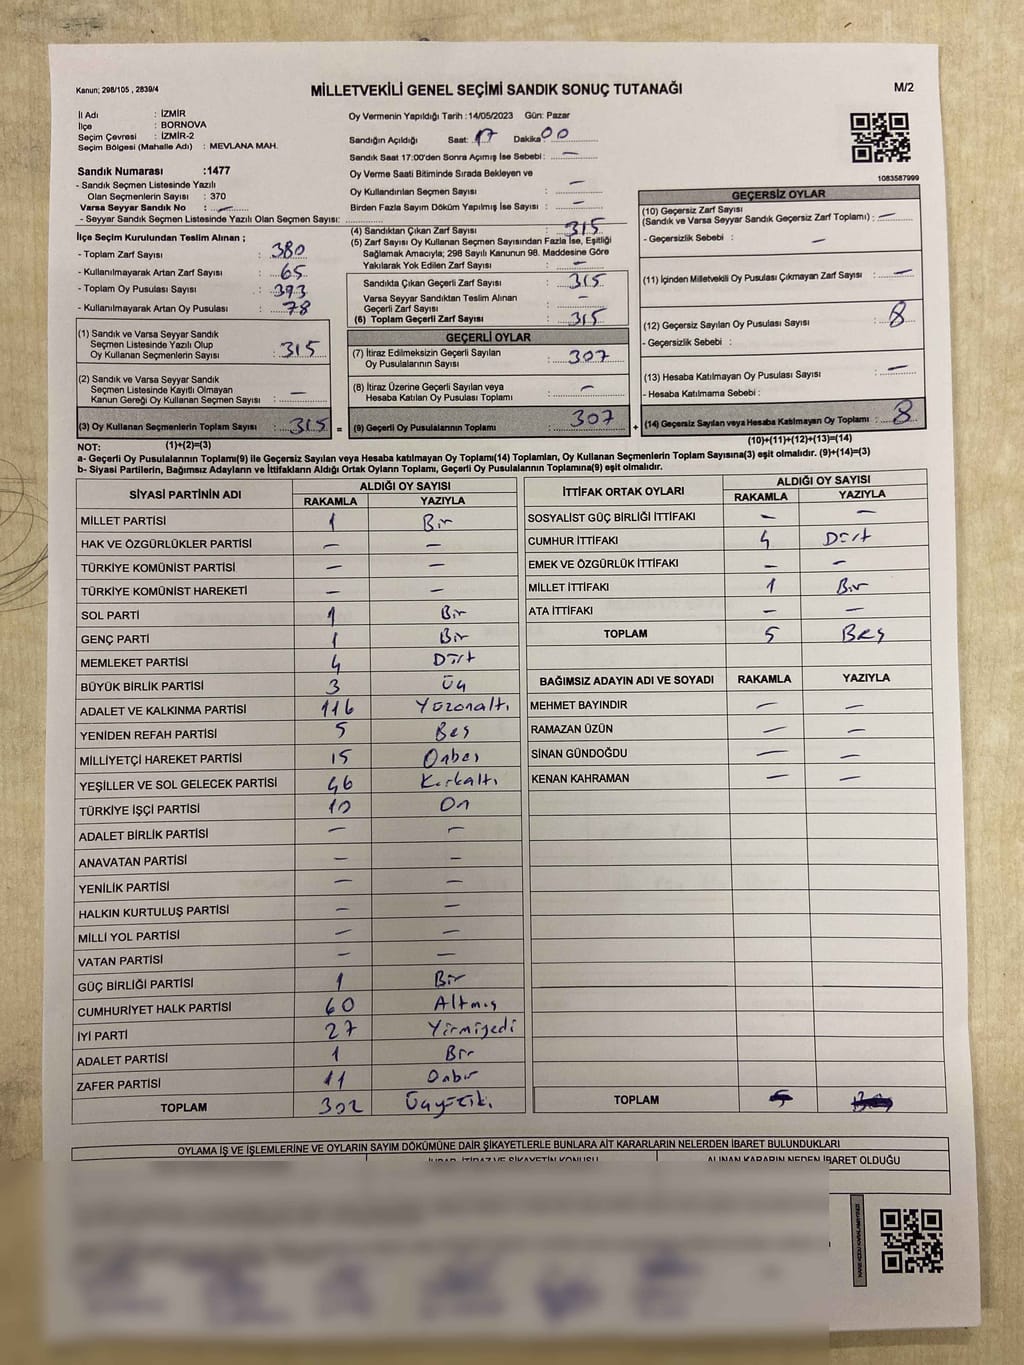 Kanun; 298/105 , 2839/4
MİLLETVEKİLİ GENEL SEÇİMİ SANDIK SONUÇ TUTANAĞI
M/2
İl Adı : İZMİR
İlçe : BORNOVA
Seçim Çevresi : İZMİR-2
Seçim Bölgesi (Mahalle Adı) : MEVLANA MAH.
Oy Vermenin Yapıldığı Tarih :14/05/2023 Gün: Pazar
Sandığın Açıldığı Saat: 17 Dakika 00
Sandık Saat 17:00'den Sonra Açılmış İse Sebebi : —
Oy Verme Saati Bitiminde Sırada Bekleyen ve
Oy Kullandırılan Seçmen Sayısı : —
Birden Fazla Sayım Döküm Yapılmış İse Sayısı : —
1083587999
Sandık Numarası :1477
- Sandık Seçmen Listesinde Yazılı
Olan Seçmenlerin Sayısı : 370
Varsa Seyyar Sandık No : —
- Seyyar Sandık Seçmen Listesinde Yazılı Olan Seçmen Sayısı:
İlçe Seçim Kurulundan Teslim Alınan ;
- Toplam Zarf Sayısı : 380
- Kullanılmayarak Artan Zarf Sayısı : 65
- Toplam Oy Pusulası Sayısı : 393
- Kullanılmayarak Artan Oy Pusulası : 78
(1) Sandık ve Varsa Seyyar Sandık
Seçmen Listesinde Yazılı Olup
Oy Kullanan Seçmenlerin Sayısı : 315
(2) Sandık ve Varsa Seyyar Sandık
Seçmen Listesinde Kayıtlı Olmayan
Kanun Gereği Oy Kullanan Seçmen Sayısı : —
(3) Oy Kullanan Seçmenlerin Toplam Sayısı : 315 =
(1)+(2)=(3)
(4) Sandıktan Çıkan Zarf Sayısı : 315
(5) Zarf Sayısı Oy Kullanan Seçmen Sayısından Fazla İse, Eşitliği
Sağlamak Amacıyla; 298 Sayılı Kanunun 98. Maddesine Göre
Yakılarak Yok Edilen Zarf Sayısı : —
Sandıkta Çıkan Geçerli Zarf Sayısı : 315
Varsa Seyyar Sandıktan Teslim Alınan
Geçerli Zarf Sayısı : —
(6) Toplam Geçerli Zarf Sayısı : 315
GEÇERLİ OYLAR
(7) İtiraz Edilmeksizin Geçerli Sayılan
Oy Pusulalarının Sayısı : 307
(8) İtiraz Üzerine Geçerli Sayılan veya
Hesaba Katılan Oy Pusulası Toplamı : —
(9) Geçerli Oy Pusulalarının Toplamı : 307 +
GEÇERSİZ OYLAR
(10) Geçersiz Zarf Sayısı
(Sandık ve Varsa Seyyar Sandık Geçersiz Zarf Toplamı) : —
- Geçersizlik Sebebi : —
(11) İçinden Milletvekili Oy Pusulası Çıkmayan Zarf Sayısı : —
(12) Geçersiz Sayılan Oy Pusulası Sayısı : 8
- Geçersizlik Sebebi :
(13) Hesaba Katılmayan Oy Pusulası Sayısı : —
- Hesaba Katılmama Sebebi :
(14) Geçersiz Sayılan veya Hesaba Katılmayan Oy Toplamı : 8
(10)+(11)+(12)+(13)=(14)
NOT:
a- Geçerli Oy Pusulalarının Toplamı(9) ile Geçersiz Sayılan veya Hesaba katılmayan Oy Toplamı(14) Toplamları, Oy Kullanan Seçmenlerin Toplam Sayısına(3) eşit olmalıdır. (9)+(14)=(3)
b- Siyasi Partilerin, Bağımsız Adayların ve İttifakların Aldığı Ortak Oyların Toplamı, Geçerli Oy Pusulalarının Toplamına(9) eşit olmalıdır.
SİYASİ PARTİNİN ADI ALDIĞI OY SAYISI
RAKAMLA YAZIYLA
MİLLET PARTİSİ 1 Bir
HAK VE ÖZGÜRLÜKLER PARTİSİ — —
TÜRKİYE KOMÜNİST PARTİSİ — —
TÜRKİYE KOMÜNİST HAREKETİ — —
SOL PARTİ 1 Bir
GENÇ PARTİ 1 Bir
MEMLEKET PARTİSİ 4 Dört
BÜYÜK BİRLİK PARTİSİ 3 Üç
ADALET VE KALKINMA PARTİSİ 116 Yüzonaltı
YENİDEN REFAH PARTİSİ 5 Beş
MİLLİYETÇİ HAREKET PARTİSİ 15 Onbeş
YEŞİLLER VE SOL GELECEK PARTİSİ 46 Kırkaltı
TÜRKİYE İŞÇİ PARTİSİ 10 On
ADALET BİRLİK PARTİSİ — —
ANAVATAN PARTİSİ — —
YENİLİK PARTİSİ — —
HALKIN KURTULUŞ PARTİSİ — —
MİLLİ YOL PARTİSİ — —
VATAN PARTİSİ — —
GÜÇ BİRLİĞİ PARTİSİ 1 Bir
CUMHURİYET HALK PARTİSİ 60 Altmış
İYİ PARTİ 27 Yirmiyedi
ADALET PARTİSİ 1 Bir
ZAFER PARTİSİ 11 Onbir
TOPLAM 302 Üçyüziki
İTTİFAK ORTAK OYLARI ALDIĞI OY SAYISI
RAKAMLA YAZIYLA
SOSYALİST GÜÇ BİRLİĞİ İTTİFAKI — —
CUMHUR İTTİFAKI 4 Dört
EMEK VE ÖZGÜRLÜK İTTİFAKI — —
MİLLET İTTİFAKI 1 Bir
ATA İTTİFAKI — —
TOPLAM 5 Beş
BAĞIMSIZ ADAYIN ADI VE SOYADI RAKAMLA YAZIYLA
MEHMET BAYINDIR — —
RAMAZAN ÜZÜN — —
SİNAN GÜNDOĞDU — —
KENAN KAHRAMAN — —
TOPLAM
OYLAMA İŞ VE İŞLEMLERİNE VE OYLARIN SAYIM DÖKÜMÜNE DAİR ŞİKAYETLERLE BUNLARA AİT KARARLARIN NELERDEN İBARET BULUNDUKLARI
İHBAR, İTİRAZ VE ŞİKAYETİN KONUSU ALINAN KARARIN NEDEN İBARET OLDUĞU